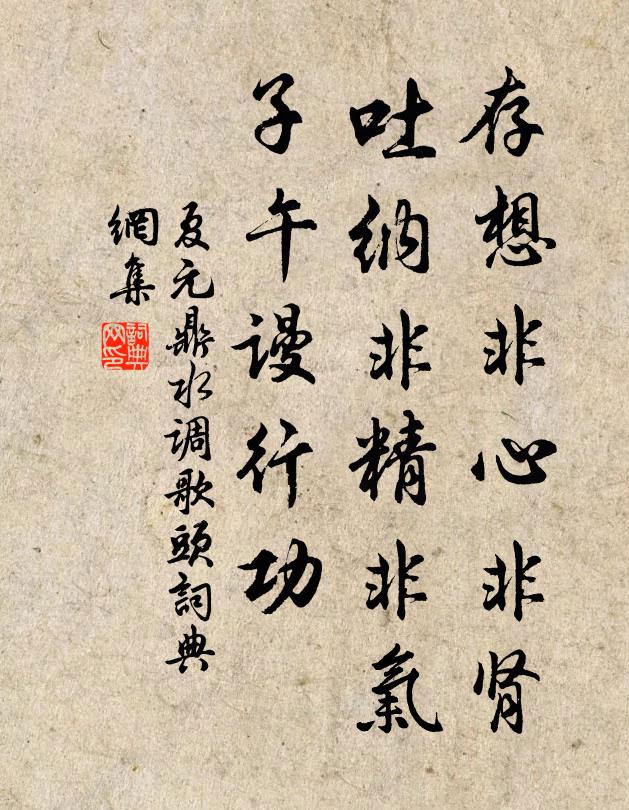 存想非心非肾
吐纳非精非氣
子午谩行功
夏元鼎水调歌頭詞典
網集
詞典网印